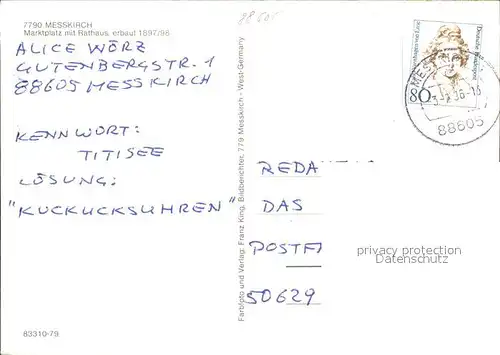 7790 MESSKIRCH
Marktplatz mit Rathaus, erbaut 1897/98
88605
ALICE WÖRZ
GUTENBERGSTR. 1
88605 MESSKIRCH
KENNWORT:
TITISEE
LÖSUNG:
"KUCKUCKSUHREN"
83310-79
Farbfoto und Verlag: Franz King, Bildberichter, 779 Messkirch - West-Germany
Deutsche Bundespost
80
MESS
88605
REDA
DAS
POSTF
50629
privacy protection
Ansichtskarten-Center